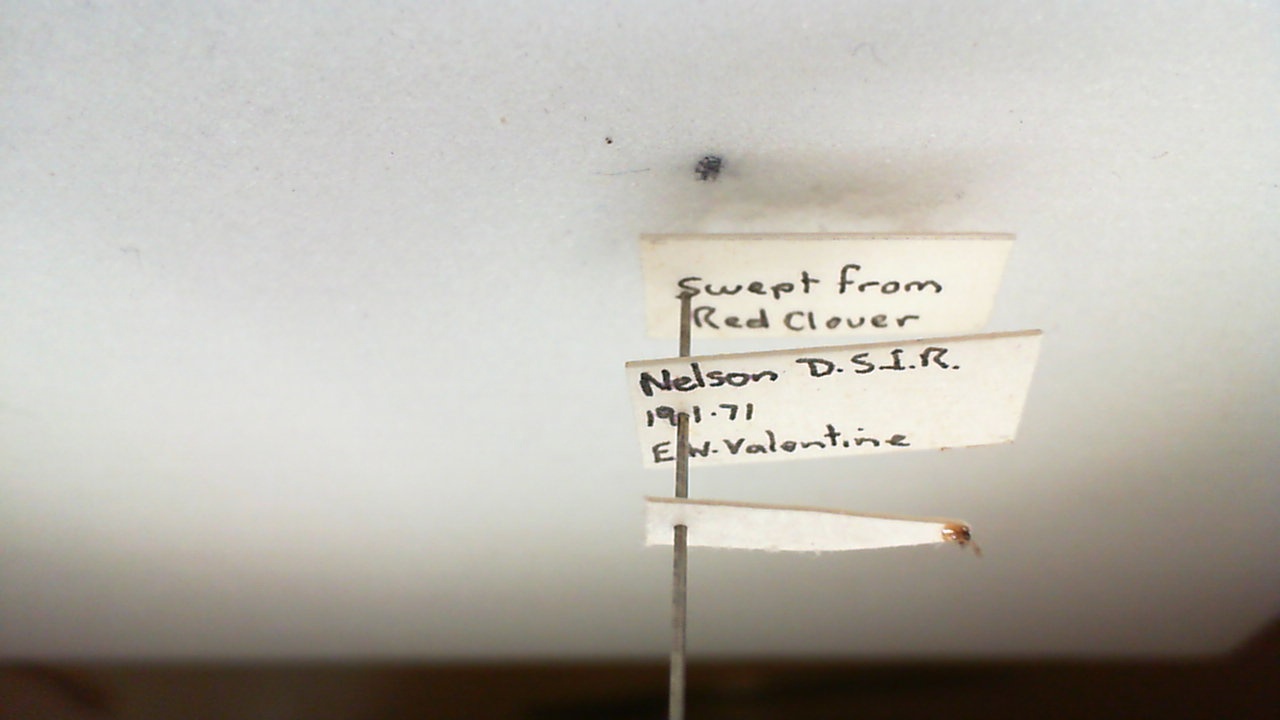 Swept from
Red Clover
Nelson D.S.I.R.
19.1.71
E.W. Valentine